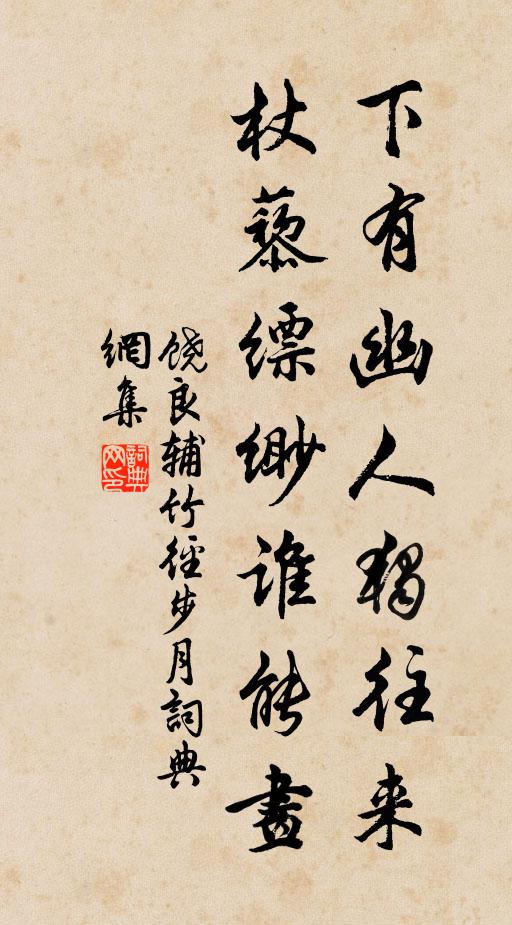 下有幽人獨往来
杖藜缥缈谁能畫
饶良辅竹徑步月詞典
網集
詞典
网印